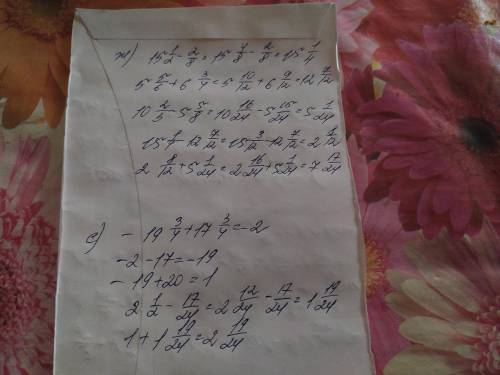 ж) 15 1/2 - 2/8 = 15 4/8 - 2/8 = 15 1/4
5 5/6 + 6 3/4 = 5 10/12 + 6 9/12 = 12 7/12
10 2/3 - 5 5/8 = 10 16/24 - 5 15/24 = 5 1/24
15 1/4 - 12 7/12 = 15 3/12 - 12 7/12 = 2 8/12
2 8/12 + 5 1/24 = 2 16/24 + 5 1/24 = 7 17/24
с) - 19 3/4 + 17 3/4 = -2
-2 - 17 = -19
- 19 + 20 = 1
2 1/2 - 17/24 = 2 12/24 - 17/24 = 1 19/24
1 + 1 19/24 = 2 19/24